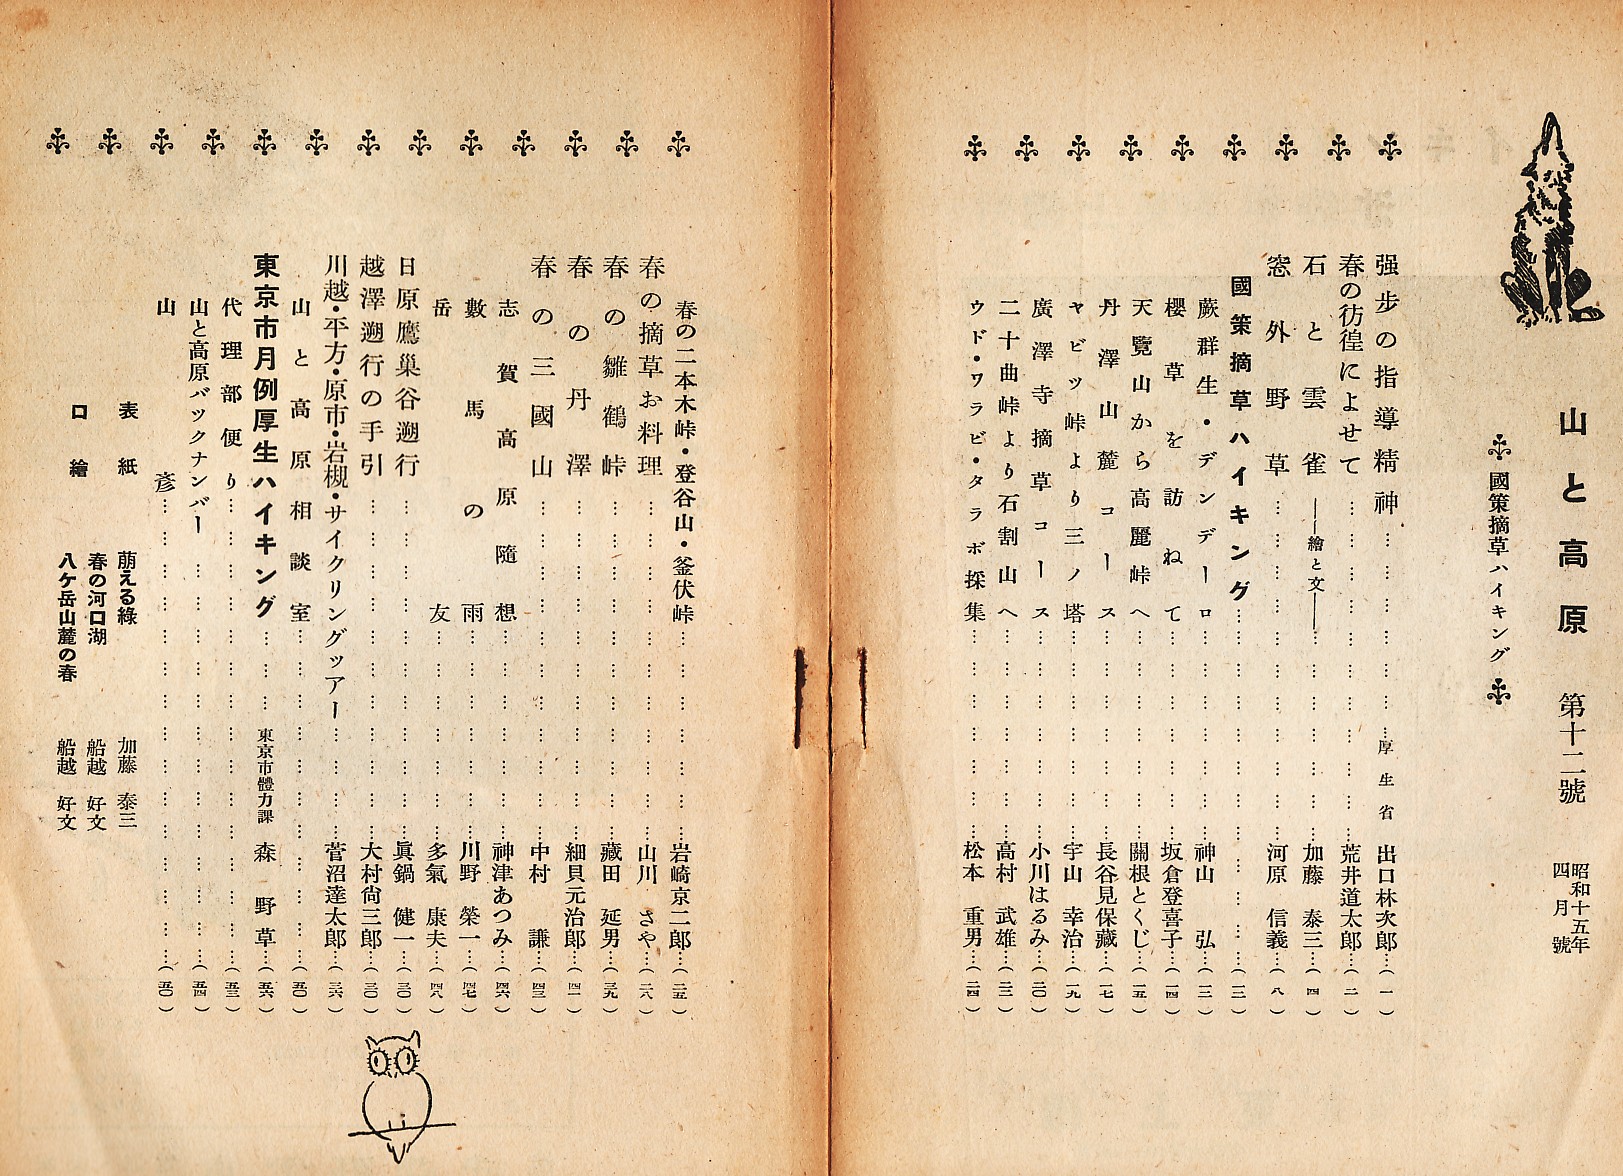 山と高原 第十二號 昭和十五年四月號
國策摘草ハイキング
强步の指導精神…厚生省 出口林次郎…(一)
春の彷徨によせて…荒井道太郎…(二)
石と雲雀――繪と文――…加藤泰三…(四)
窓外野草…河原信義…(八)
國策摘草ハイキング…(一二)
蕨群生・デンデーロ…神山弘…(一三)
櫻草を訪ねて…坂倉登喜子…(一四)
天覽山から高麗峠へ…關根とくじ…(一五)
丹澤山麓コース…長谷見保藏…(一七)
ヤビツ峠より三ノ塔…宇山幸治…(一九)
廣澤寺摘草コース…小川はるみ…(二〇)
二十曲峠より石割山へ…高村武雄…(二三)
ウド・ワラビ・タラボ採集…松本重男…(二四)
春の二本木峠・登谷山・釜伏峠…岩崎京二郎…(二五)
春の摘草お料理…山川さや…(二八)
春の雛鶴峠…藏田延男…(三九)
春の丹澤…細貝元治郎…(四一)
春の三國山…中村謙…(四三)
志賀高原隨想…神津あつみ…(四六)
數馬の雨…川野榮一…(四七)
岳友…多氣康夫…(四八)
日原鷹巢谷遡行…眞鍋健一…(三〇)
越澤遡行の手引…大村尙三郎…(三〇)
川越・平方・原市・岩槻・サイクリングツアー…菅沼達太郎…(三六)
山と高原相談室…(五〇)
東京市月例厚生ハイキング…東京市體力課 森野草…(五六)
代理部便り…(五三)
山と高原バックナンバー…(五四)
山彥…(五〇)
表紙 萠える綠 加藤泰三
口繪 春の河口湖 船越好文
八ケ岳山麓の春 船越好文